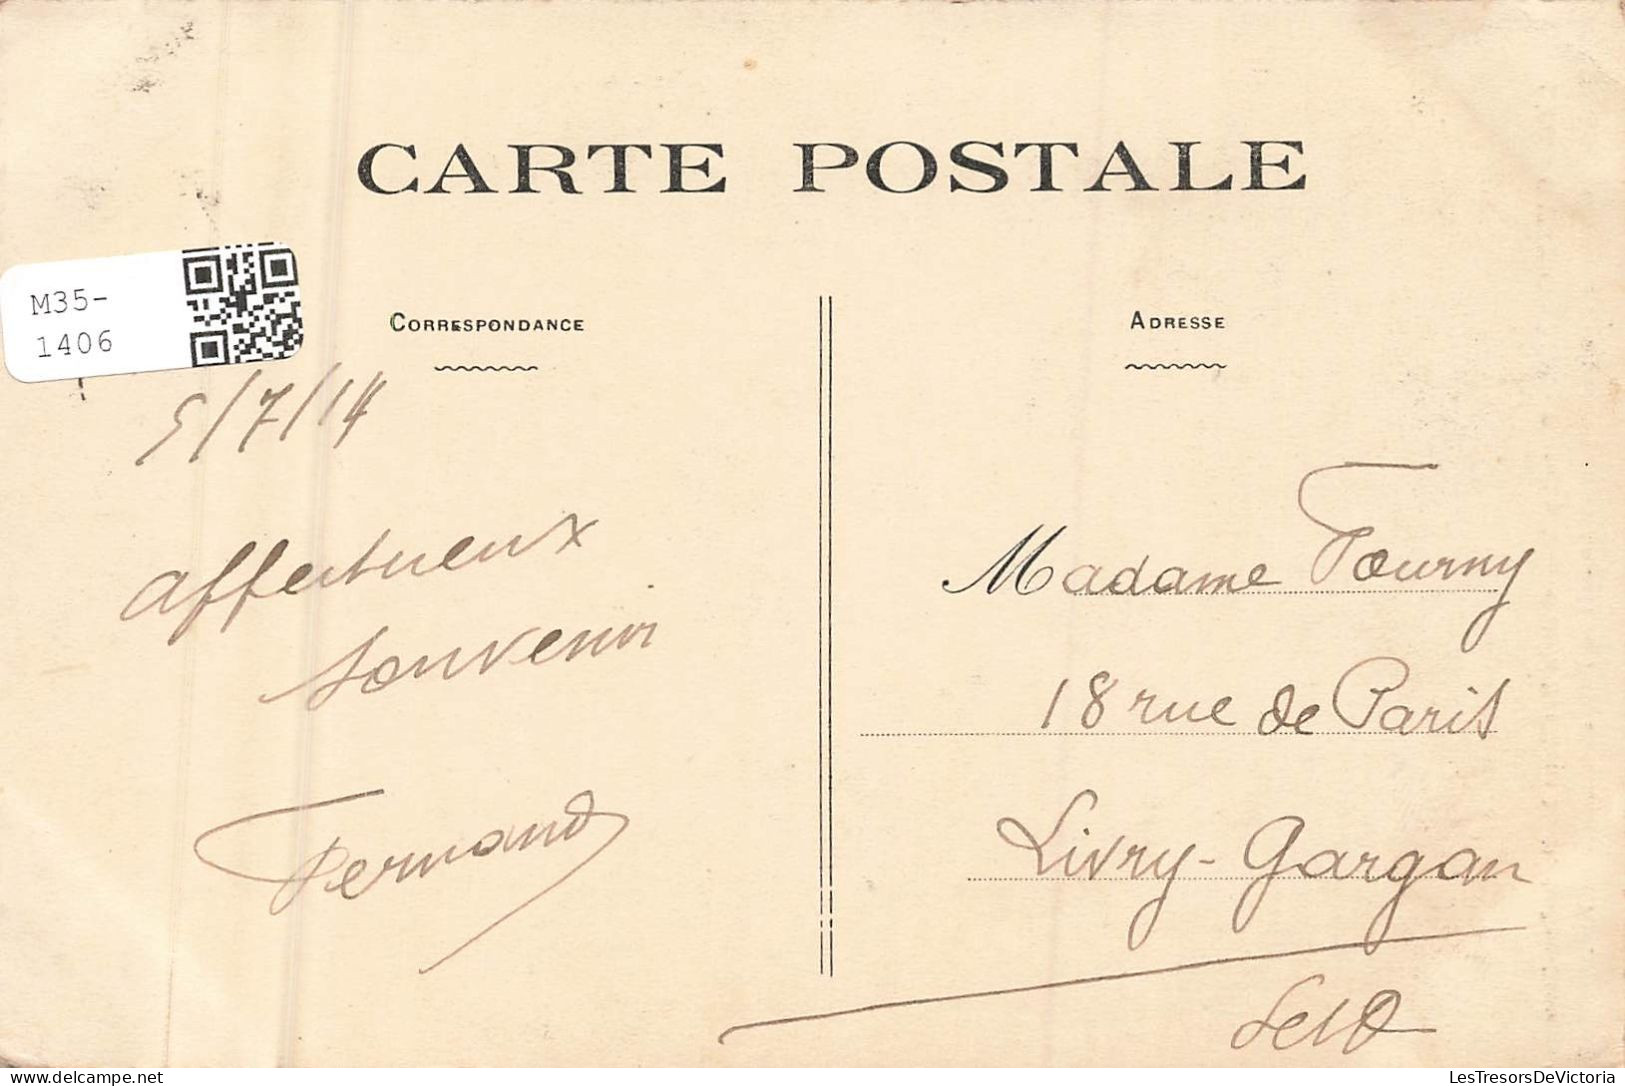 CARTE POSTALE
M35-
1406
CORRESPONDANCE
ADRESSE
5/7/14
affectueux
souvenir
Fernand
Madame Fourny
18 rue de Paris
Livry-Gargan
S et O
LesTresorsDeVictoria